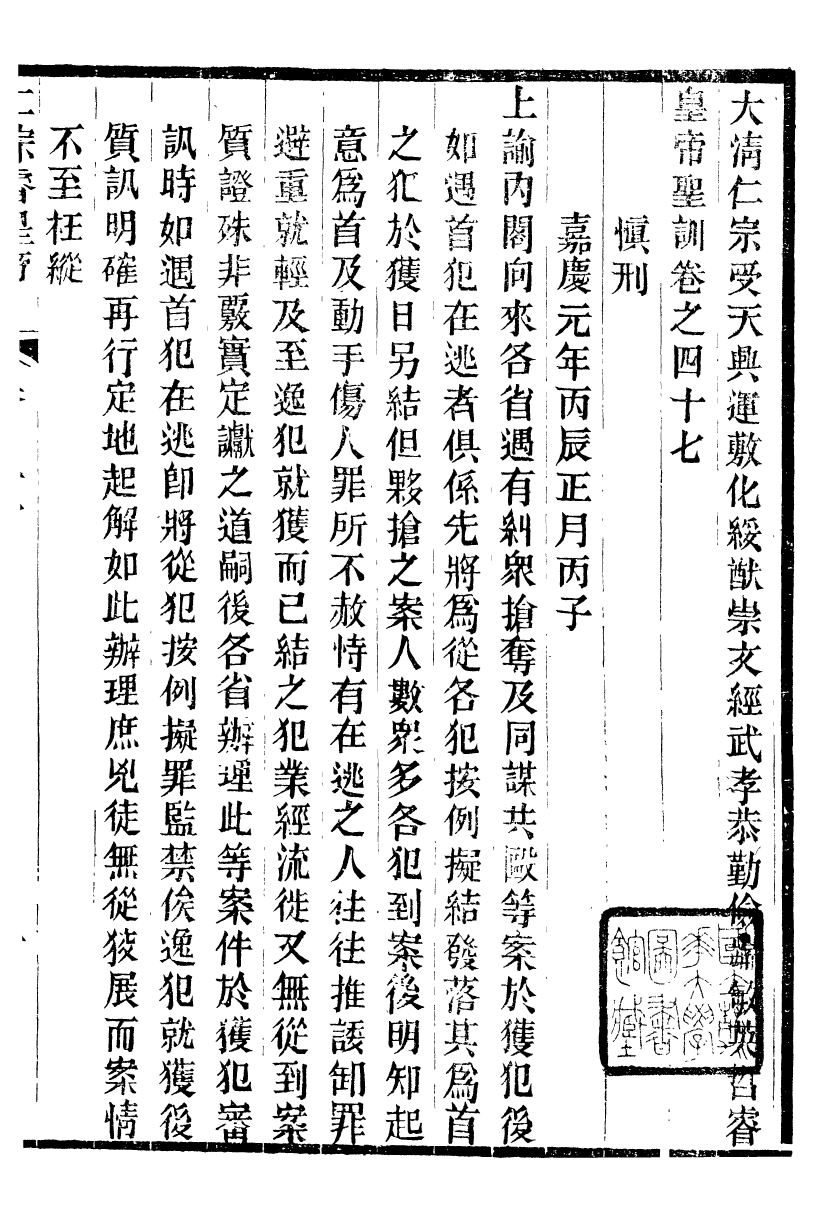 大清仁宗受天興運敷化綏猷崇文經武孝恭勤儉端敏英哲睿
皇帝聖訓卷之四十七
愼刑
嘉慶元年丙辰正月丙子
上諭內閣向來各省遇有糾眾搶奪及同謀共毆等案於獲犯後
如遇首犯在逃者俱係先將爲從各犯按例擬結發落其爲首
之犯於獲日另結但夥搶之案人數眾多各犯到案後明知起
意爲首及動手傷人罪所不赦恃有在逃之人往往推諉卸罪
避重就輕及至逸犯就獲而已結之犯業經流徙又無從到案
質證殊非覈實定讞之道嗣後各省辦理此等案件於獲犯審
訊時如遇首犯在逃卽將從犯按例擬罪監禁俟逸犯就獲後
質訊明確再行定地起解如此辦理庶兇徒無從狡展而案情
不至枉縱
仁宗睿皇帝